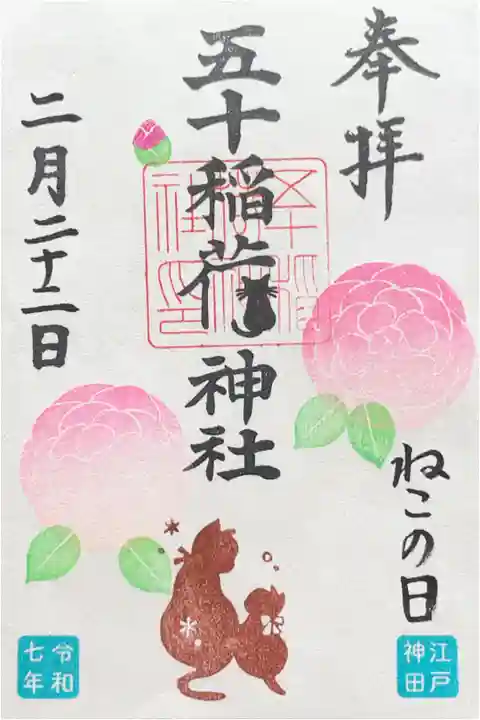 奉拝
ねこの日
五十稲荷神社
二月二十二日
江戸
神田
令和
七年